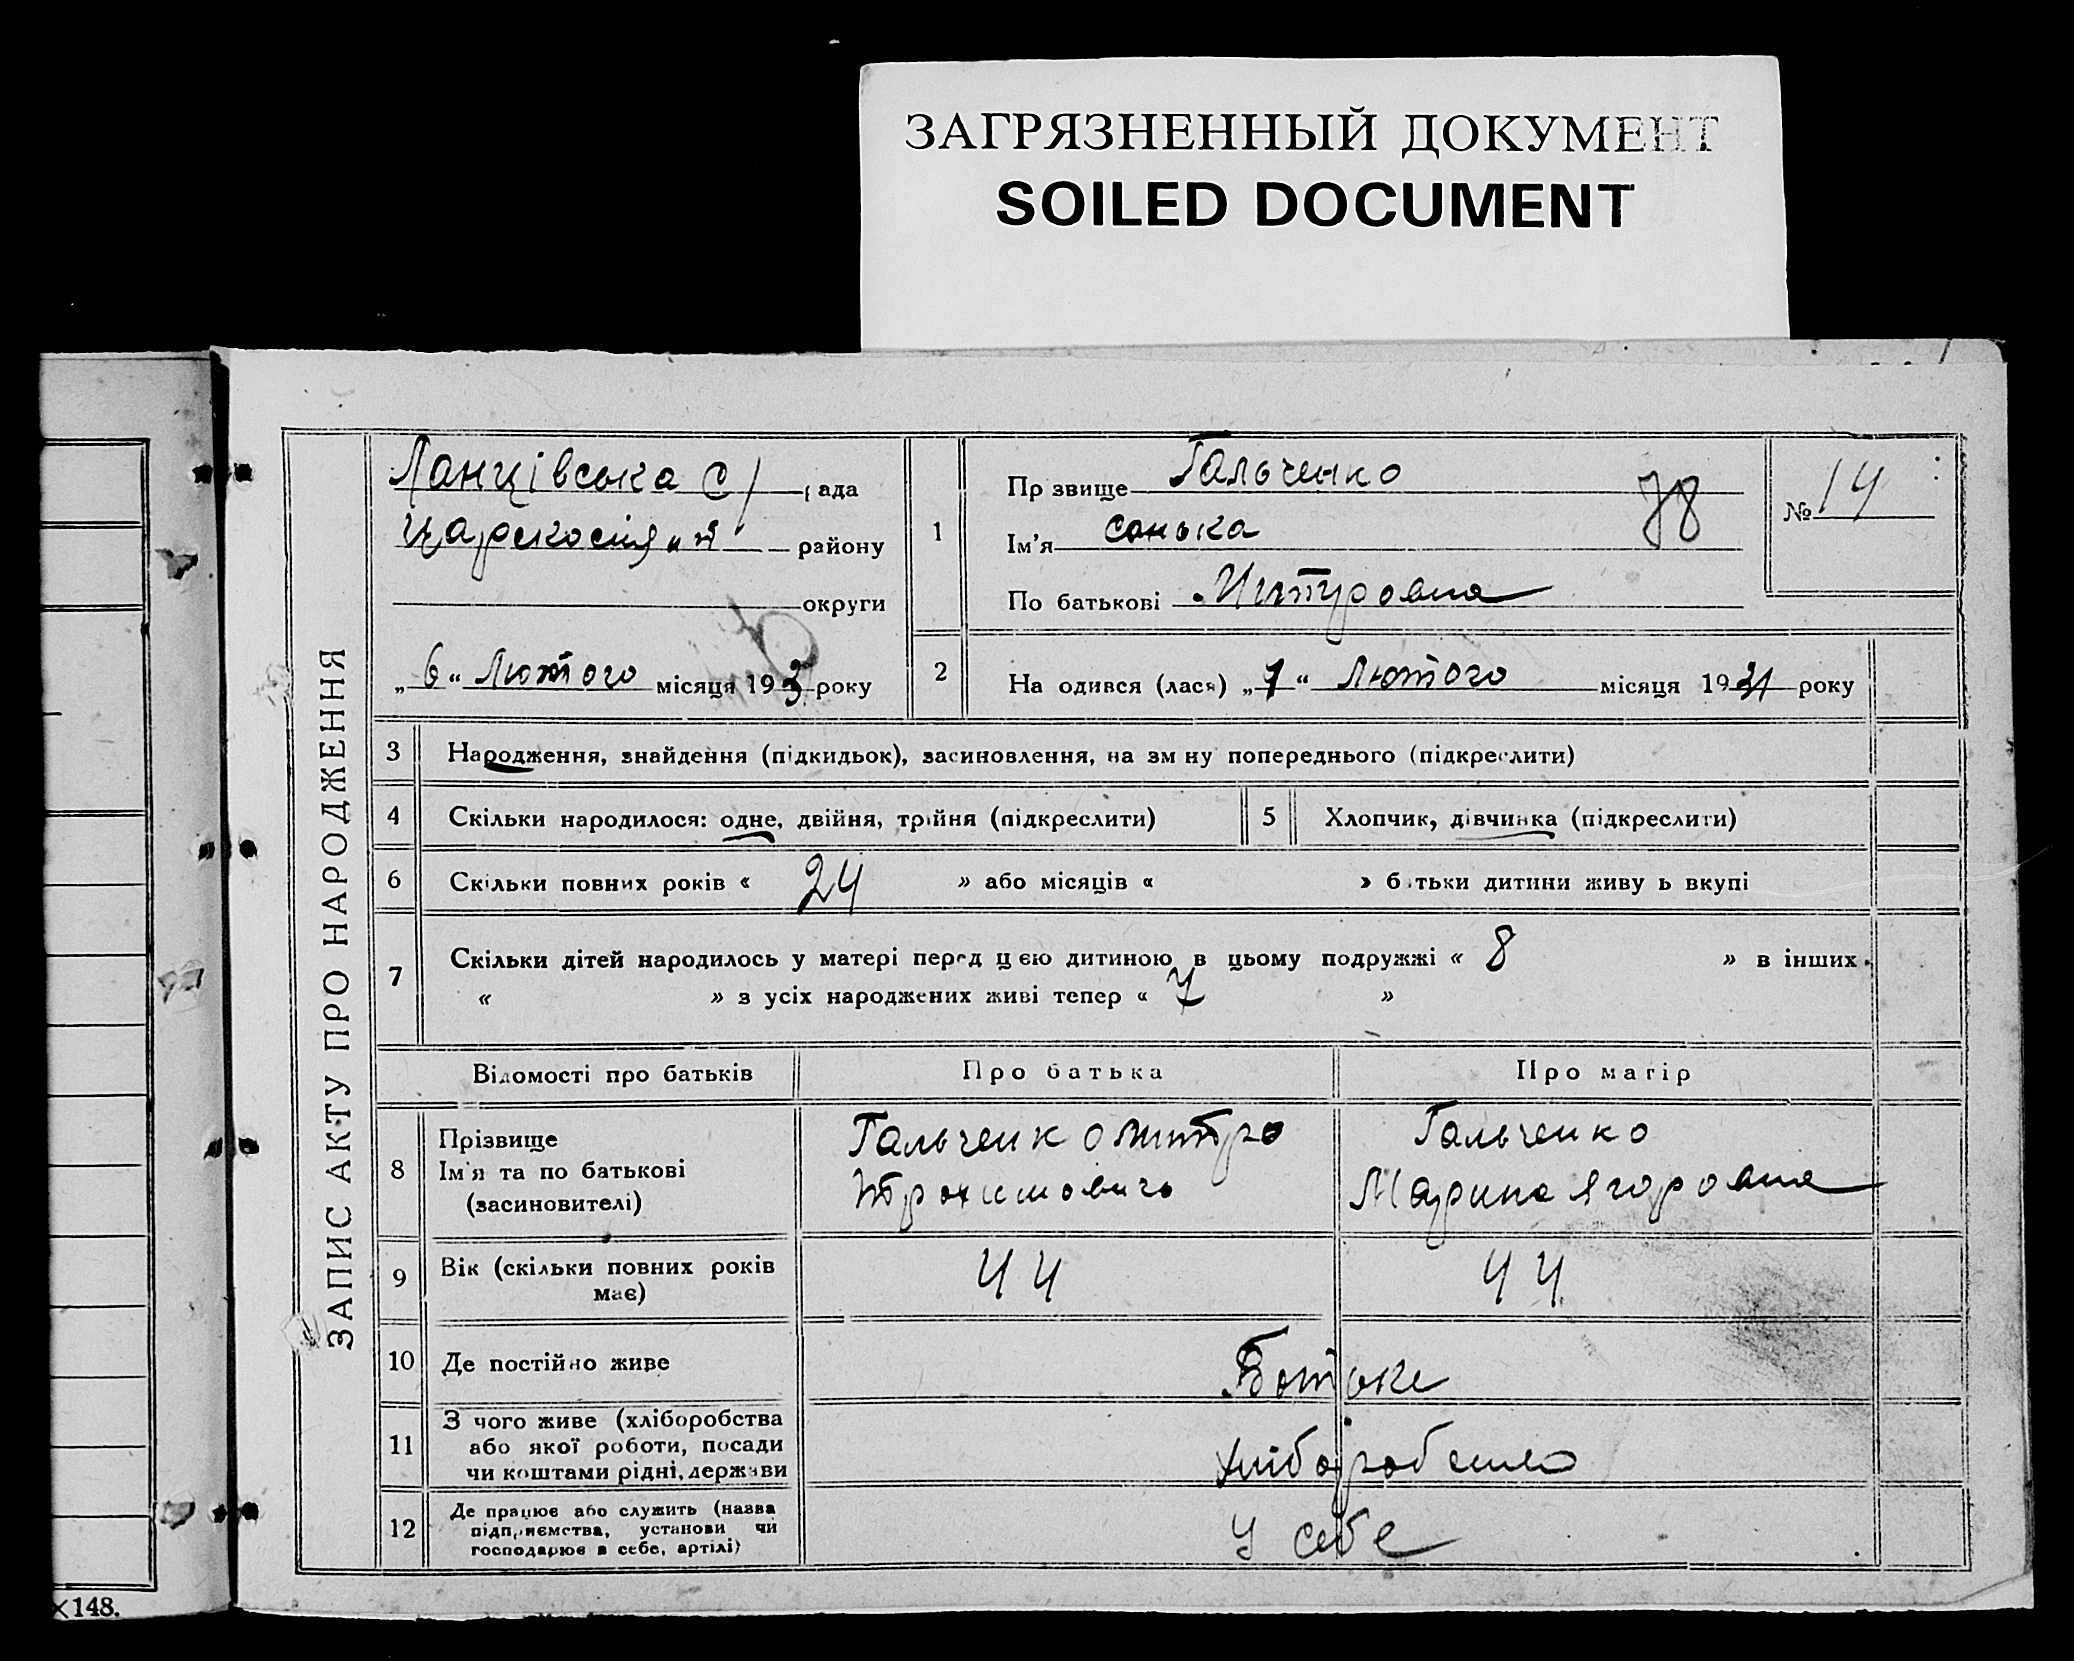 ЗАГРЯЗНЕННЫЙ ДОКУМЕНТ
SOILED DOCUMENT
ЗАПИС АКТУ ПРО НАРОДЖЕННЯ
Ланцівська с/ рада
району
округи
„6“ Лютого місяця 193 року
1
Пр звище Гальченко
78
№ 14
Ім'я Санька
По батькові Митровна
2
На одився (лася) „7“ Лютого місяця 1931 року
3 Народження, знайдення (підкидьок), засиновлення, на зм ну попереднього (підкреслити)
4 Скільки народилося: одне, двійня, трійня (підкреслити) 5 Хлопчик, дівчинка (підкреслити)
6 Скільки повних років « 24 » або місяців « » б тьки дитини живу ь вкупі
7 Скільки дітей народилось у матері перед цією дитиною в цьому подружжі « 8 » в інших
« » з усіх народжених живі тепер « 7 »
Відомості про батьків Про батька Про матір
8 Прізвище
Ім'я та по батькові
(засиновителі)
Гальченко Митро
Трохимовичь
Гальченко
Марина Ягоровна
9 Вік (скільки повних років
має)
44 44
10 Де постійно живе
11 З чого живе (хліборобства
або якої роботи, посади
чи коштами рідні, держави
12 Де працює або служить (назва
підприємства, установи чи
господарює в себе, артілі)
У себе
×148.